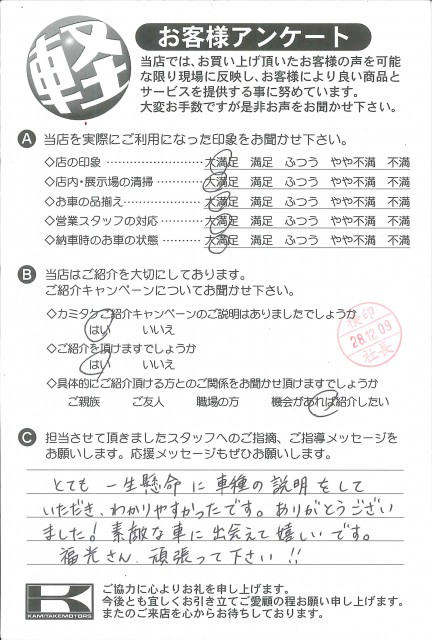 軽
お客様アンケート
当店では、お買い上げ頂いたお客様の声を可能
な限り現場に反映し、お客様により良い商品と
サービスを提供する事に努めています。
大変お手数ですが是非お声をお聞かせ下さい。
A 当店を実際にご利用になった印象をお聞かせ下さい。
◇店の印象 大満足 満足 ふつう やや不満 不満
◇店内・展示場の清掃 大満足 満足 ふつう やや不満 不満
◇お車の品揃え 大満足 満足 ふつう やや不満 不満
◇営業スタッフの対応 大満足 満足 ふつう やや不満 不満
◇納車時のお車の状態 大満足 満足 ふつう やや不満 不満
B 当店はご紹介を大切にしております。
ご紹介キャンペーンについてお聞かせ下さい。
◇カミタケご紹介キャンペーンのご説明はありましたでしょうか
はい いいえ
◇ご紹介を頂けますでしょうか
はい いいえ
◇具体的にご紹介頂ける方とのご関係をお聞かせ頂けますでしょうか
ご親族 ご友人 職場の方 機会があれば紹介したい
検印
28.12.09
社長
C 担当させて頂きましたスタッフへのご指摘、ご指導メッセージを
お願いします。応援メッセージもぜひお願いします。
とても 一生懸命 に 車種の 説明 をして
いただき、わかりやすかったです。ありがとうござい
ました! 素敵な車に出会えて嬉しいです。
福光さん、頑張って下さい!!
K
KAMITAKEMOTORS
ご協力に心よりお礼を申し上げます。
今後とも宜しくお引き立てご愛顧の程お願い申し上げます。
またのご来店を心からお待ちしております。